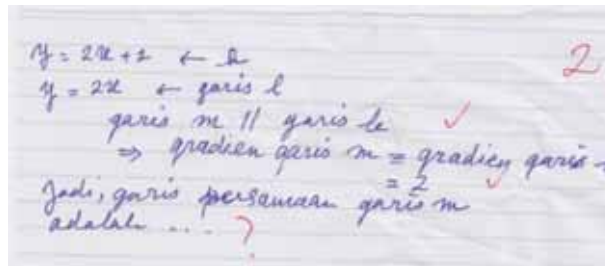 y = 2x + 1 ← k 2
y = 2x ← garis l
garis m // garis k ✓
⇒ gradien garis m = gradien garis
= 2 ✓
Jadi, garis persamaan garis m
adalah .... ?